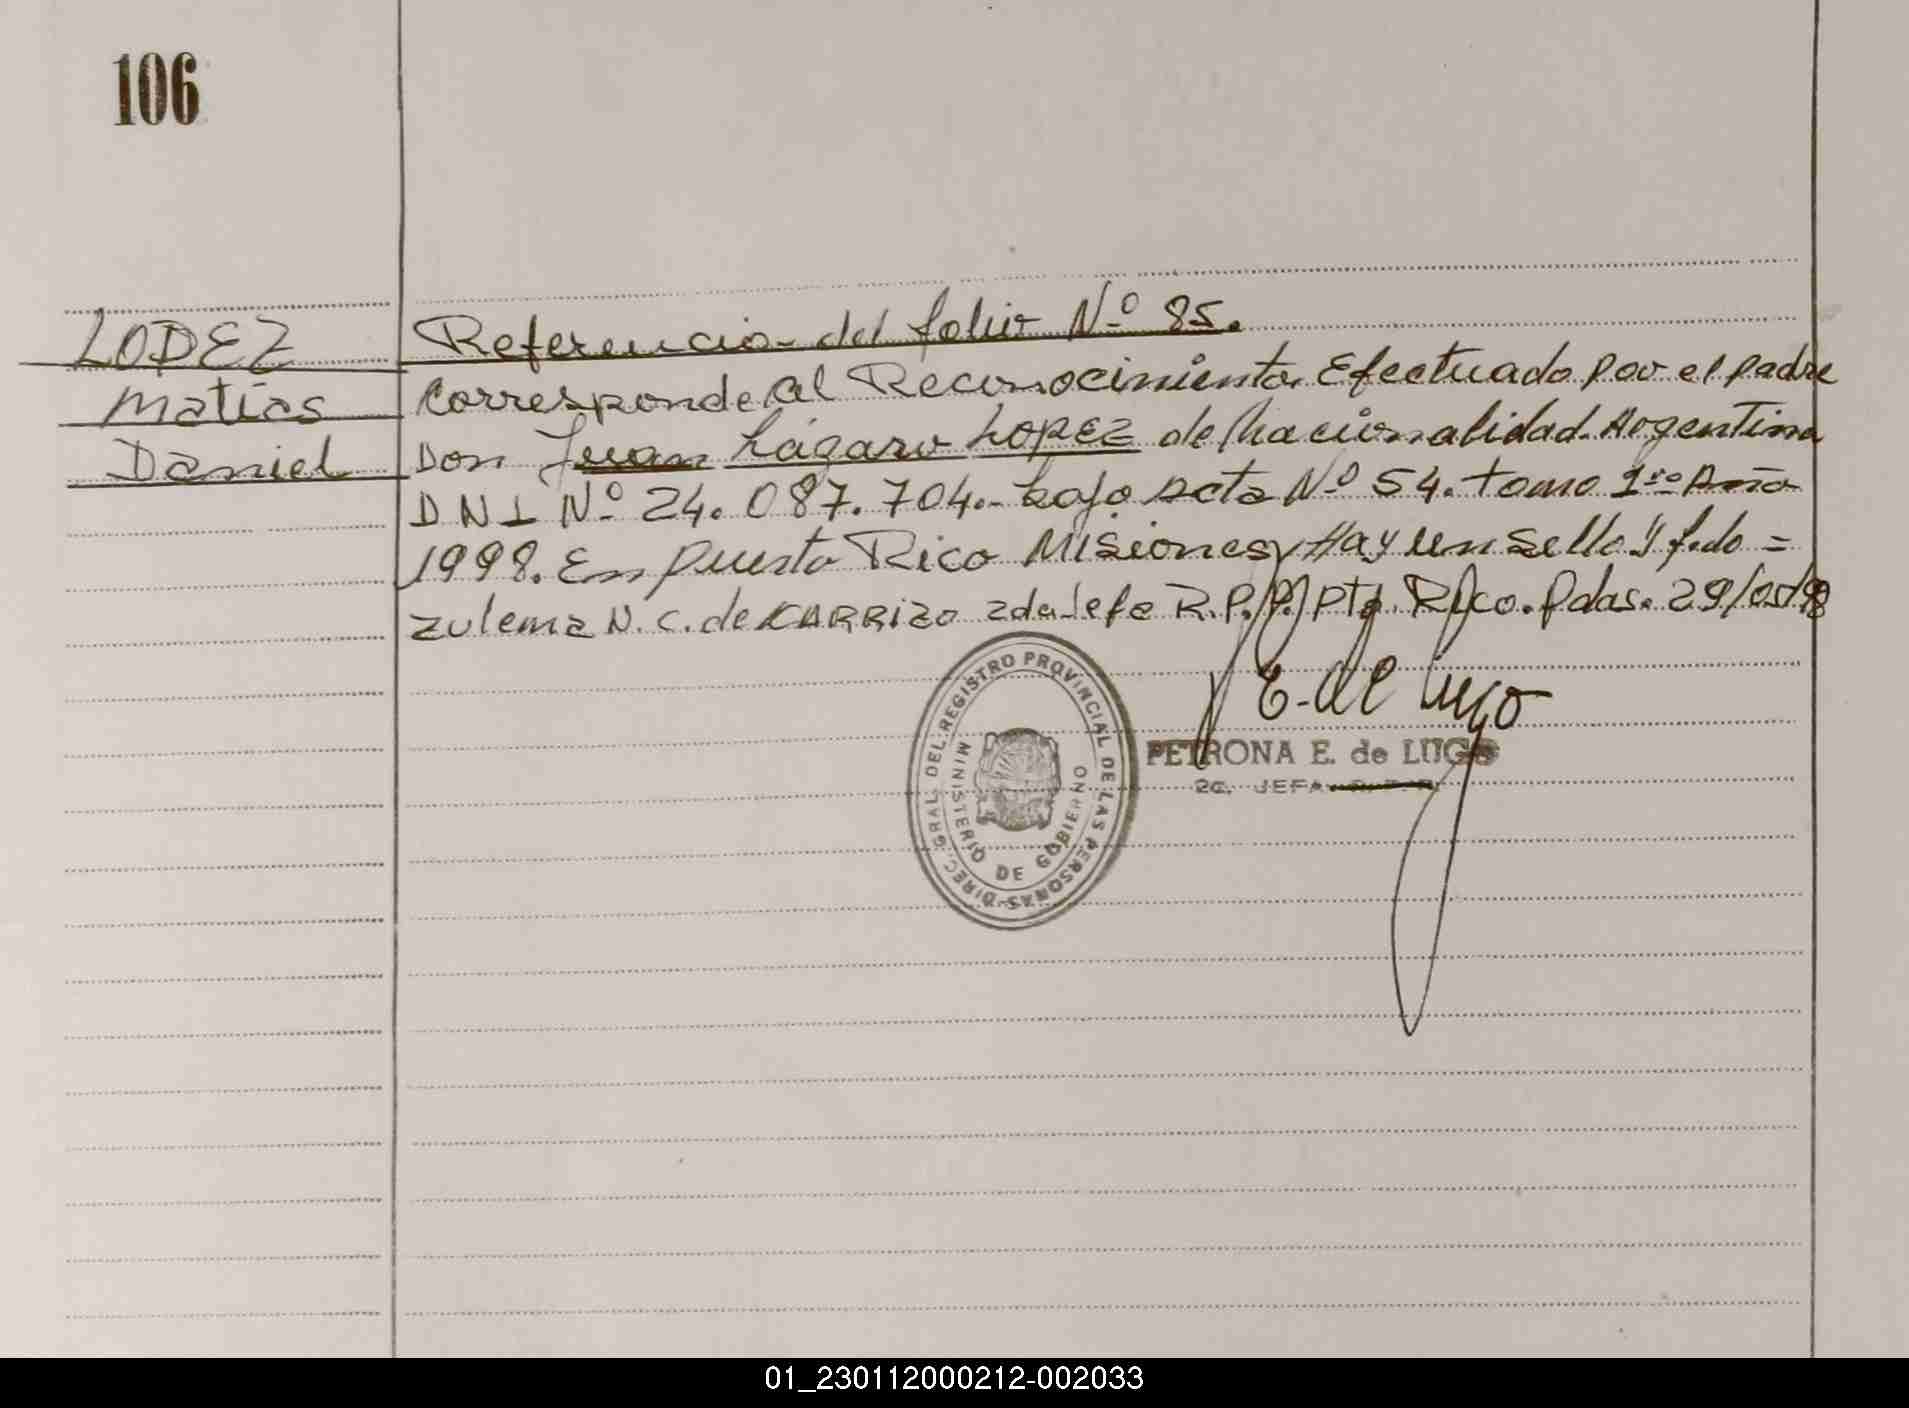 106
LOPEZ
Matías
Daniel
Referencia del folio Nº 85.
Corresponde al Reconocimiento Efectuado por el padre
Don Juan Lázaro LOPEZ de Nacionalidad Argentina
DNI Nº 24.087.704.- bajo acta Nº 54. tomo 1ro Año
1998. En Puerto Rico Misiones, Hay un sello y fdo =
Zulema N. C. de CARRIZO 2da Jefe R.P.P. Pto. Rico. Pdas. 29/05/98
E. de Lugo
PETRONA E. de LUGO
2a. JEFA
DIREC. GRAL. DEL REGISTRO PROVINCIAL DE LAS PERSONAS
MINISTERIO DE GOBIERNO
01_230112000212-002033